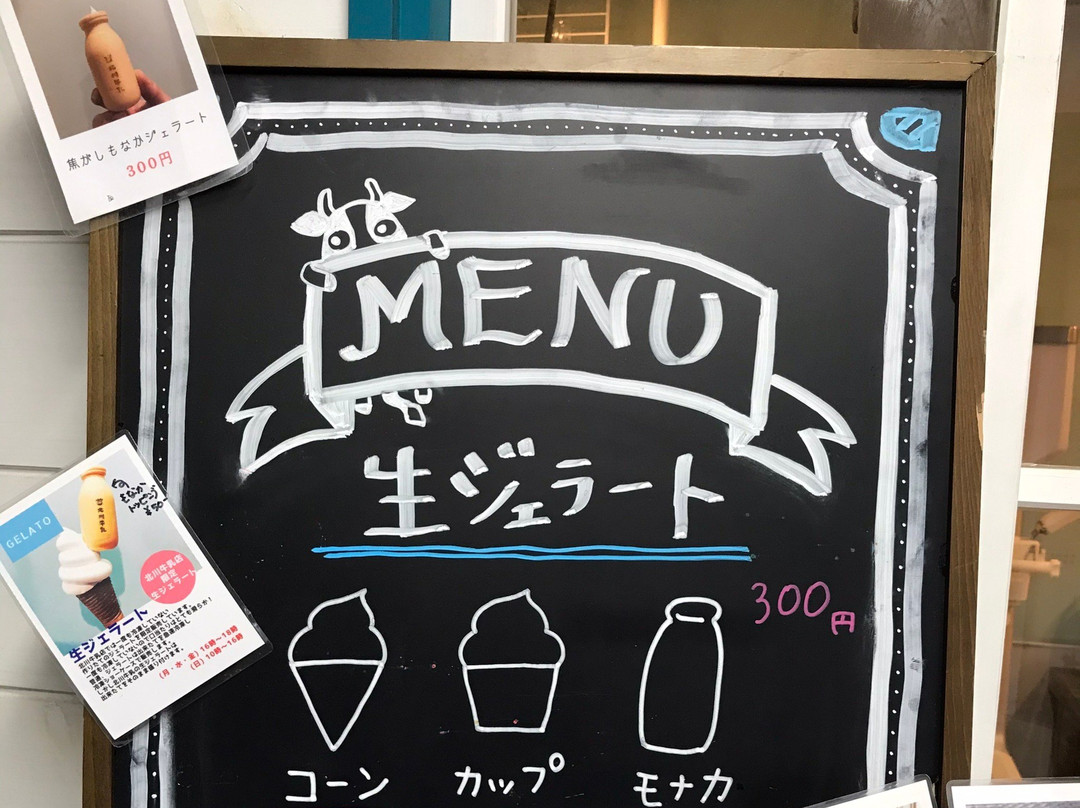 焦がしもなかジェラート
300円
MENU
生ジェラート
300円
コーン
カップ
モナカ
GELATO
もなか
トッピング
¥50
北川牛乳店
限定
生ジェラート
生ジェラート
(月・水・金)16時〜18時
(日)10時〜16時